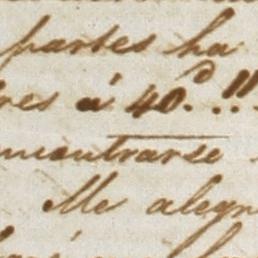 partes ha
res á 40.d !!
ncontrarse
Me alegr